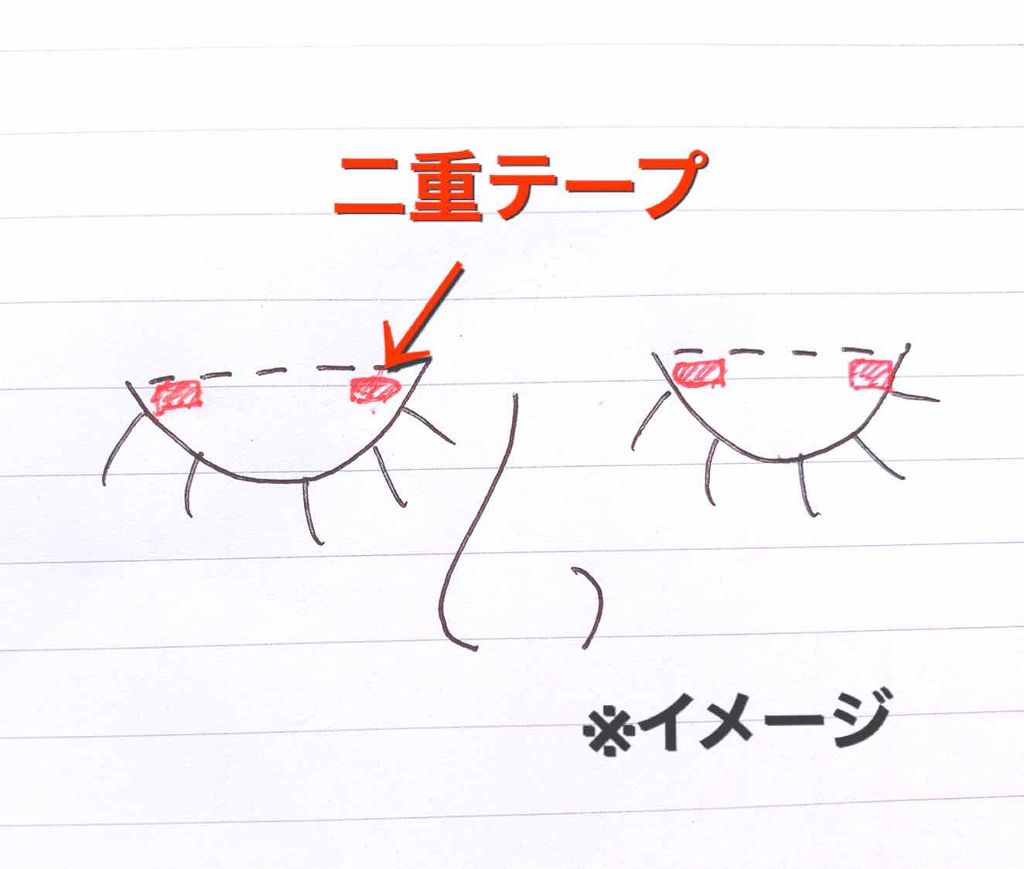 二重テープ
※イメージ